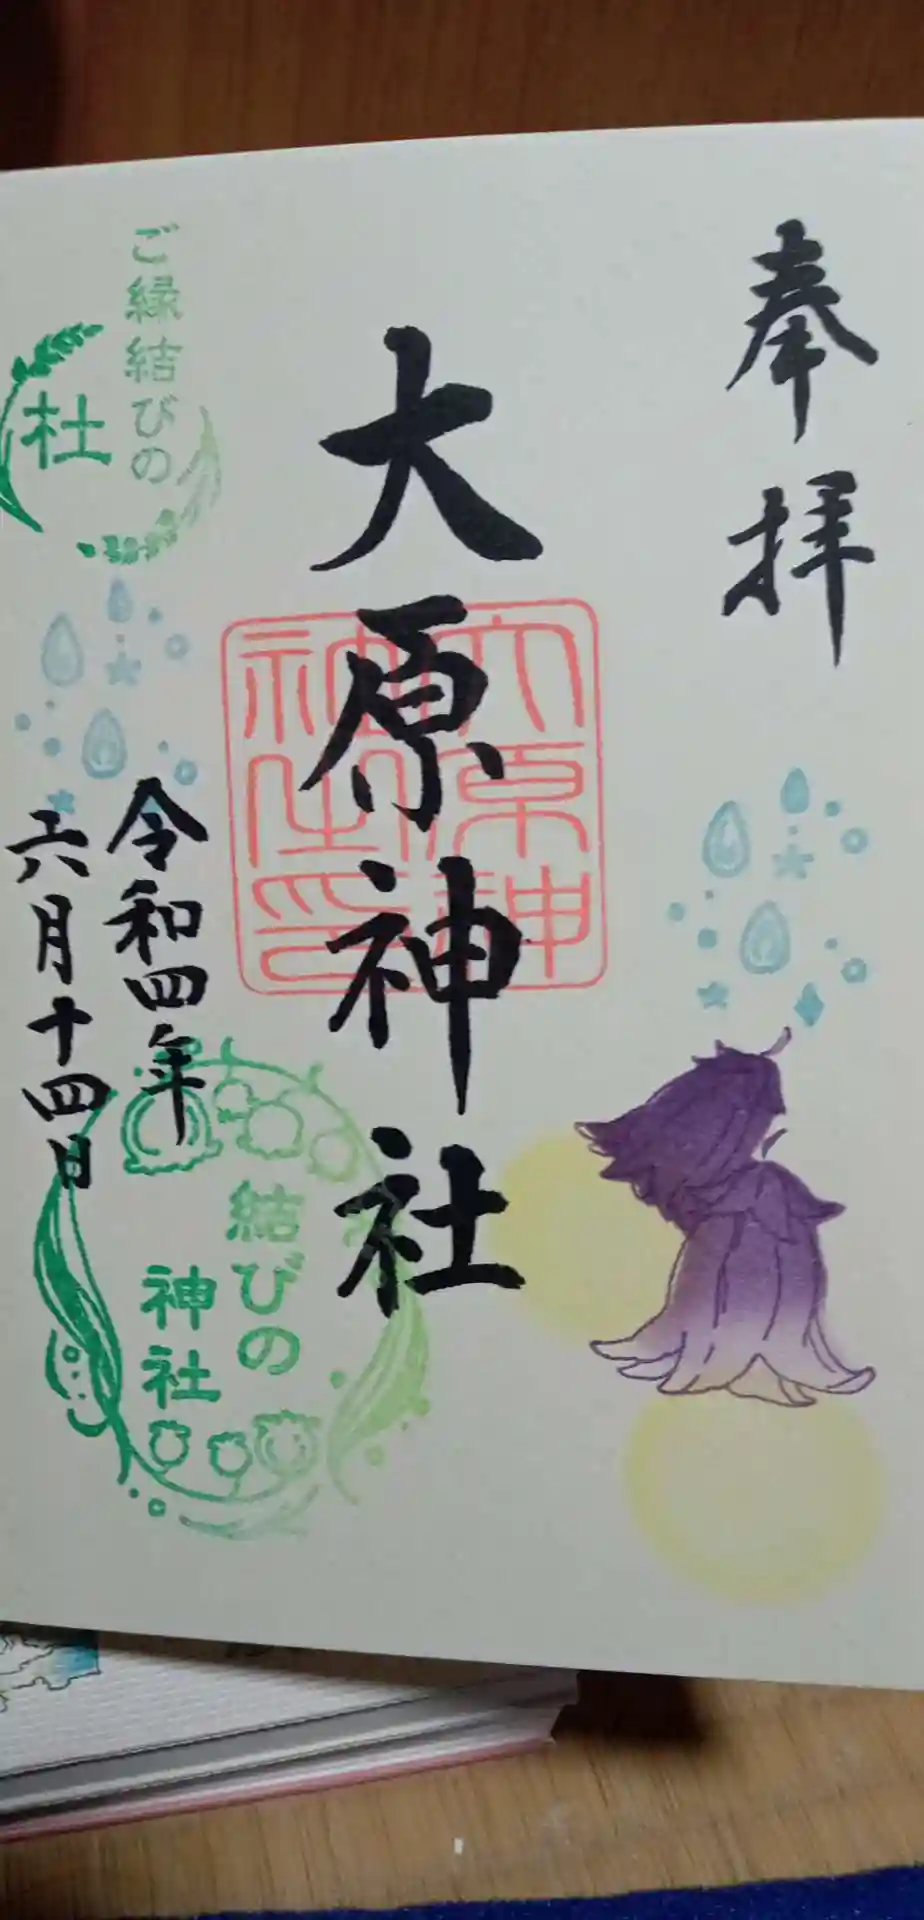 奉拝
大原神社
大原神社之印
ご縁結びの
杜
令和四年
六月十四日
結びの
神社